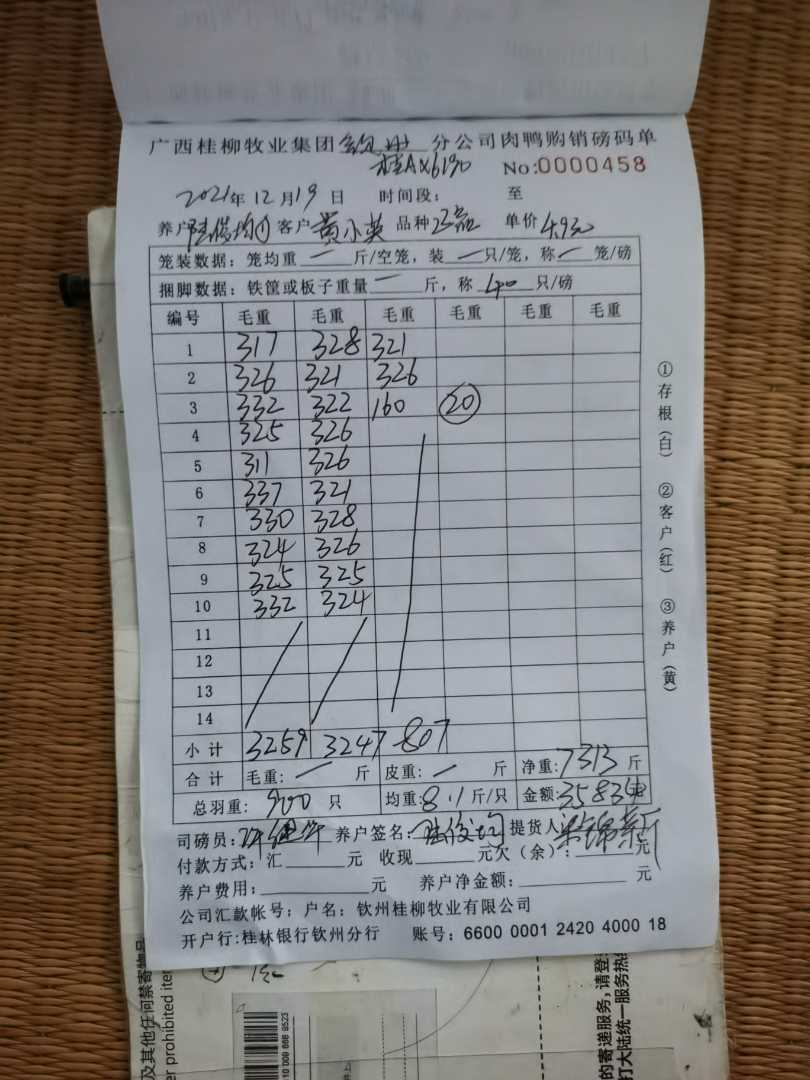 广西桂柳牧业集团 钦州 分公司肉鸭购销磅码单
桂AX6190 No:0000458
2021年12月19日 时间段: 至
养户 陆俊均① 客户 黄小英 品种 单价 4.9元
笼装数据: 笼均重 一 斤/空笼, 装 一 只/笼, 称 一 笼/磅
捆脚数据: 铁筐或板子重量 一 斤, 称 40 只/磅
编号 毛重 毛重 毛重 毛重 毛重 毛重
1 317 328 321
2 326 321 326
3 332 322 160 20
4 325 326
5 311 326
6 337 321
7 330 328
8 324 326
9 325 325
10 332 324
11
12
13
14
小计 3259 3247 807
合计 毛重: 一 斤 皮重: 一 斤 净重: 7313 斤
总羽重: 900 只 均重: 8.1 斤/只 金额: 35834元
司磅员: 养户签名: 陆俊均 提货人
付款方式: 汇 元 收现 元欠(余): 元
养户费用: 元 养户净金额: 元
公司汇款帐号: 户名: 钦州桂柳牧业有限公司
开户行:桂林银行钦州分行 账号: 6600 0001 2420 4000 18
①存根(白) ②客户(红) ③养户(黄)
及其他任何禁寄物品
r prohibited iter
10 009 668 8523
的寄递服务,请登
打大陆统一服务热